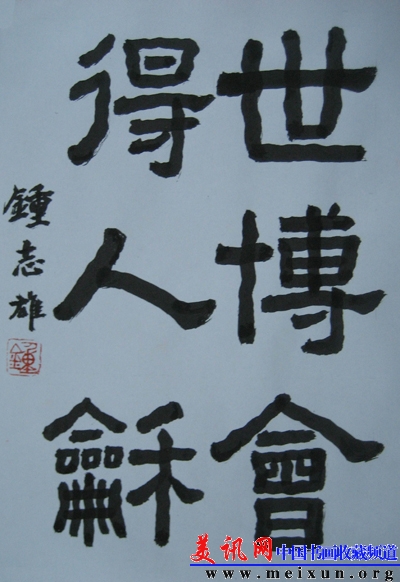 世博會
得人龢
鍾志雄
鍾
美讯网
中国书画收藏频道
www.meixun.org